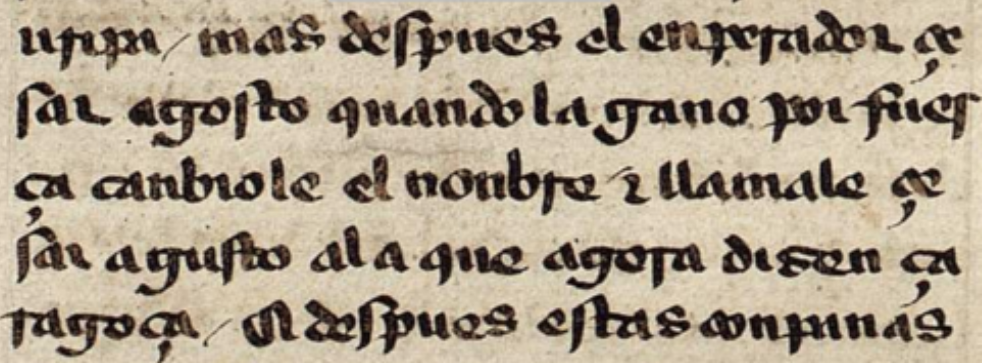 uripa / mas despues el enperador çe
sar agosto quando la gano por fuer
ça canbiole el nonbre ⁊ llamale çe
sar agusto al a que agora dizen ça
ragoça / E despues estas conpannas